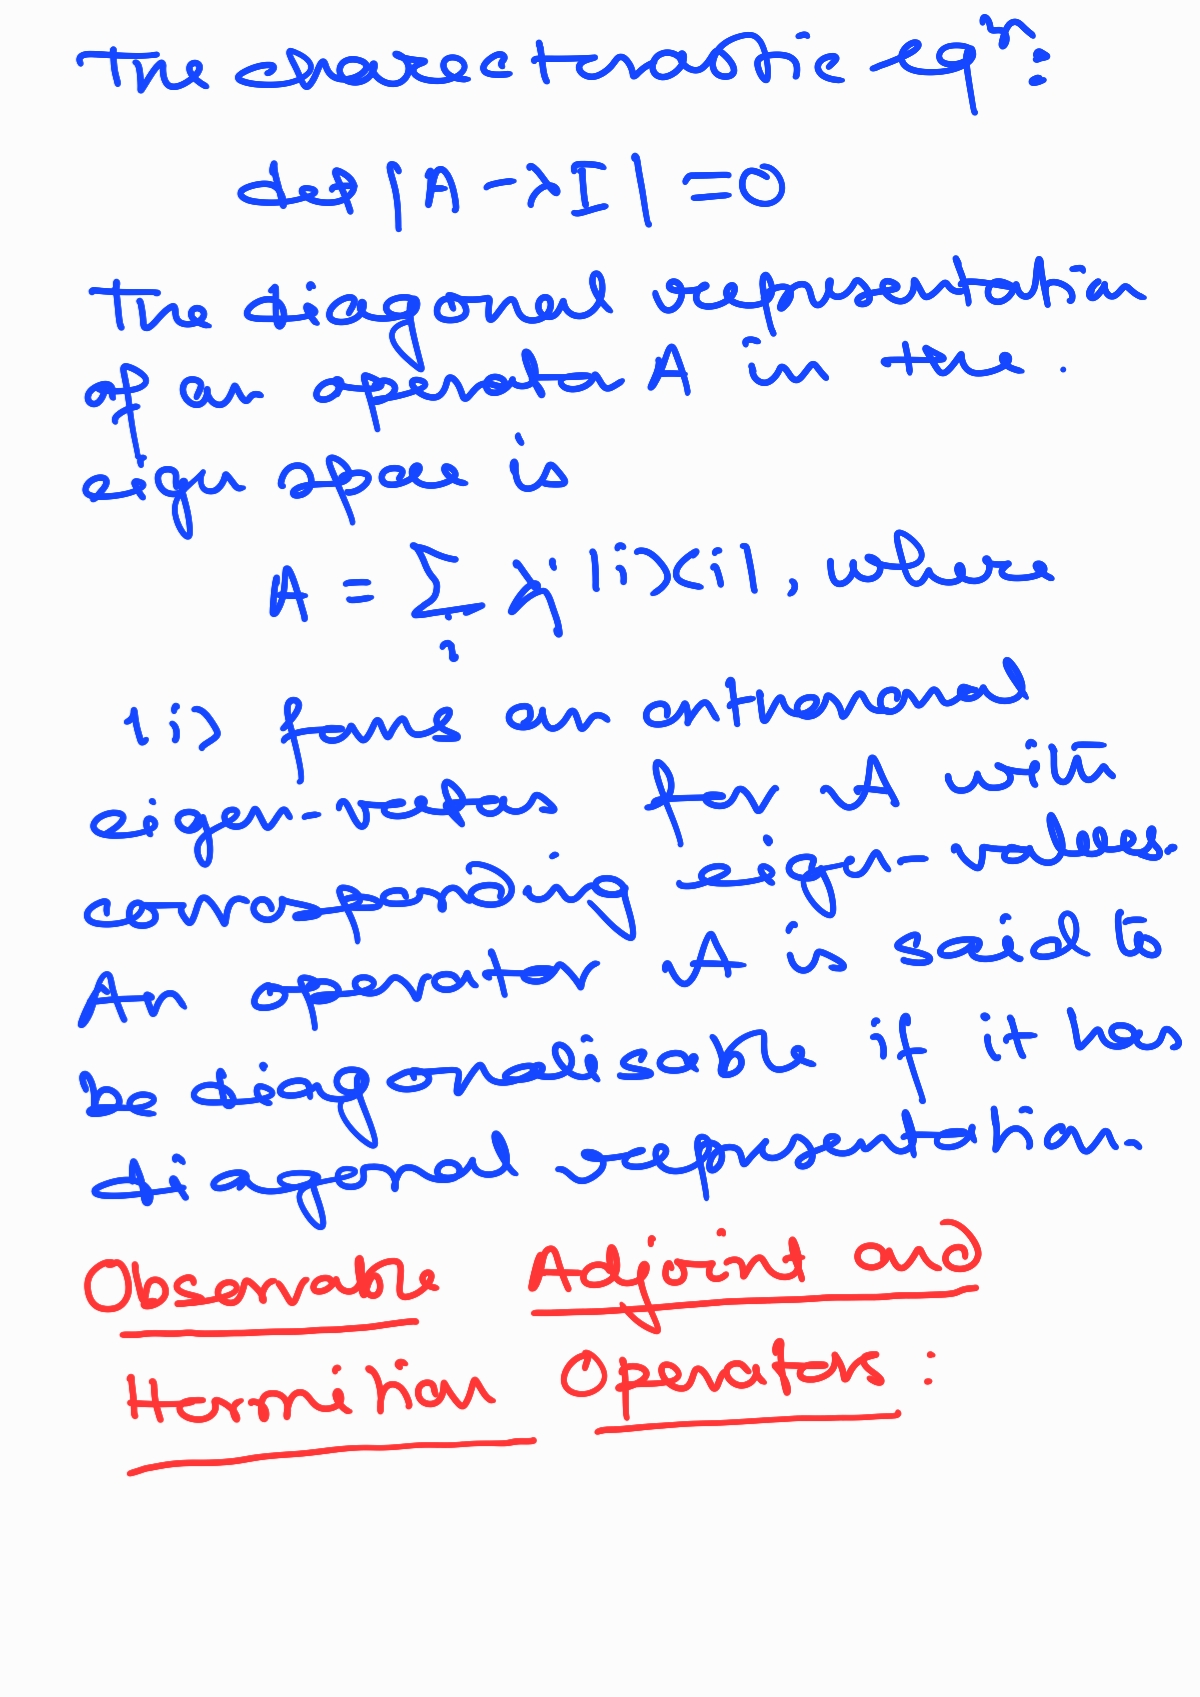 The charecterastic eqⁿ:
det |A - λI| = 0
The diagonal representation
of an operator A in the.
eigen space is
A = ∑ᵢ λᵢ |i><i|, where
|i> forms an orthonormal
eigen-vectors for A with
corrosponding eigen-values.
An operator A is said to
be diagonalisable if it has
diagonal representation.
Observable Adjoint and
Hermitian Operators: